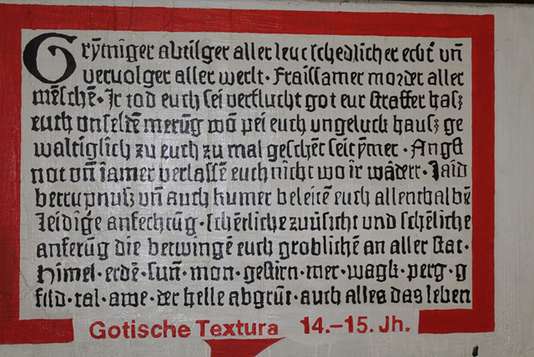 Grỹmiger abtilger aller leut schedlicher echt̃ vñ
vervolger aller werlt · Fraissamer morder aller
mẽschẽ · Ir tod euch sei verflucht got eur straffer hasz
euch vnseldẽ merũg wõ pei euch ungeluck hausz ge
waltiglich zu euch zu mal geschẽt seit ỹmer · Angst
not vñ iamer verlassẽ euch nicht wo ir wãdert · Laid
betrupnusz vñ auch kumer beleitẽ euch allenthalbẽ
leidige anfechtũg · schẽtliche zuvũsicht vnd schẽliche
anferũg die betwingẽ euch groblichẽ an aller stat ·
Himel · erde · sũn · mon · gestirn · mer · wagk · perg · g
fild · tal · awe · der helle abgrũt · auch alles das leben
Gotische Textura 14.–15. Jh.